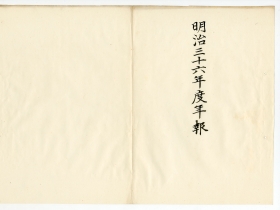 明治三十六年度年報